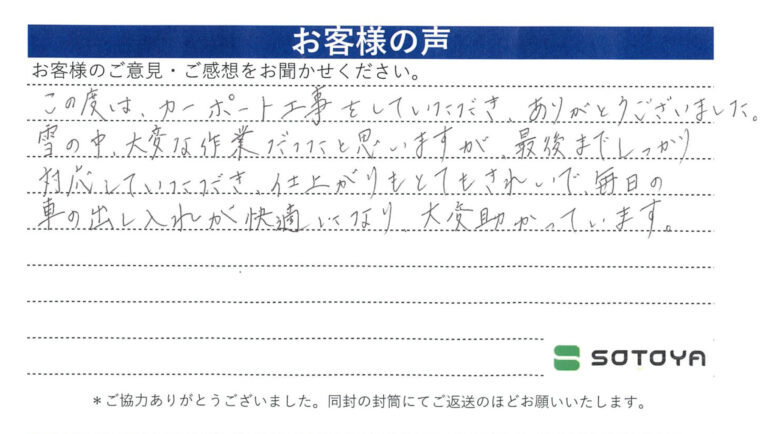 お客様の声
お客様のご意見・ご感想をお聞かせください。
この度は、カーポート工事をしていただき、ありがとうございました。
雪の中、大変な作業だったと思いますが、最後までしっかり
対応していただき、仕上がりもとてもきれいで、毎日の
車の出し入れが快適になり、大変助かっています。
SOTOYA
＊ご協力ありがとうございました。同封の封筒にてご返送のほどお願いいたします。